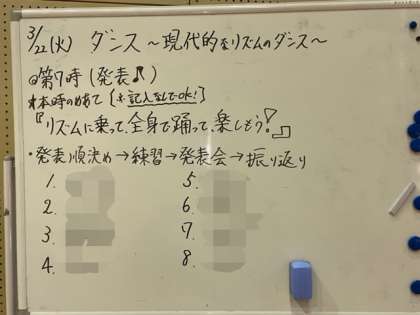 3/22(火) ダンス～現代的なリズムのダンス～
◎第7時(発表♪)
*本時のめあて(※記入なしでOK!)
『リズムに乗って、全身で踊って、楽しもう!』
・発表順決め→練習→発表会→振り返り
1. 5.
2. 6.
3. 7.
4. 8.